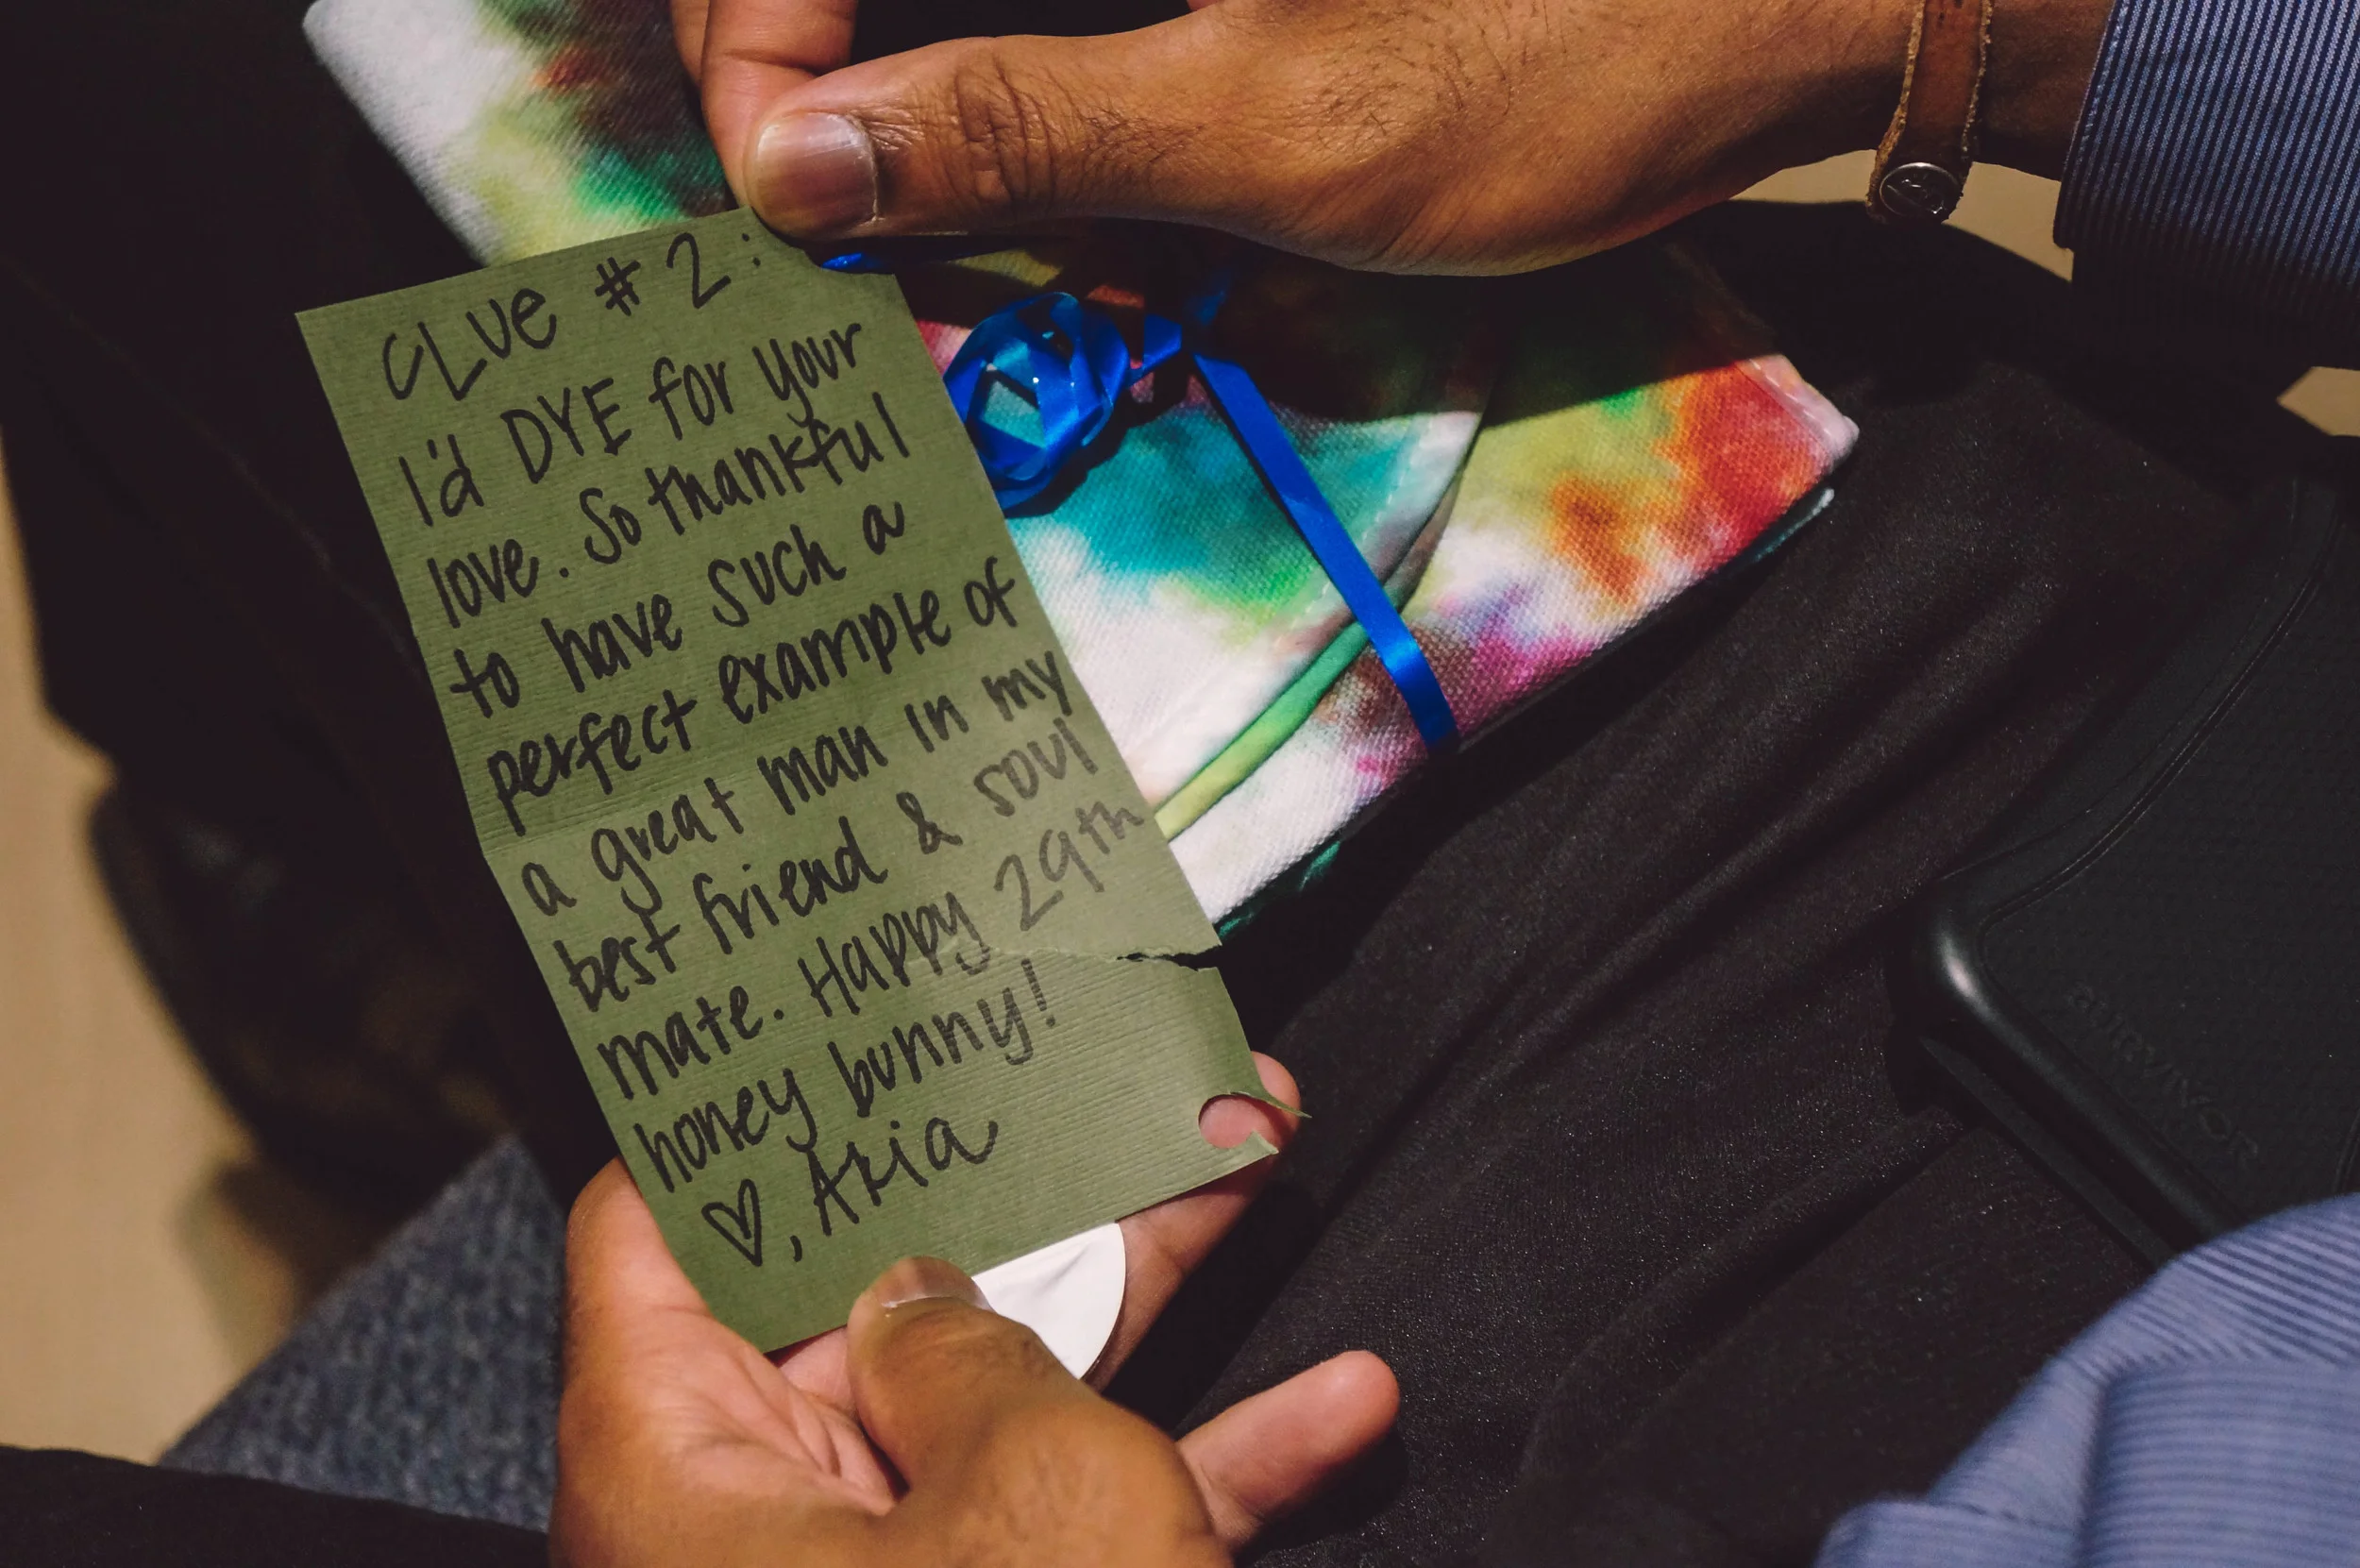 CLUE #2:
I'd DYE for your
love. So thankful
to have such a
perfect example of
a great man in my
best friend & soul
mate. Happy 29th
honey bunny!
♡, Aria
SURVIVOR